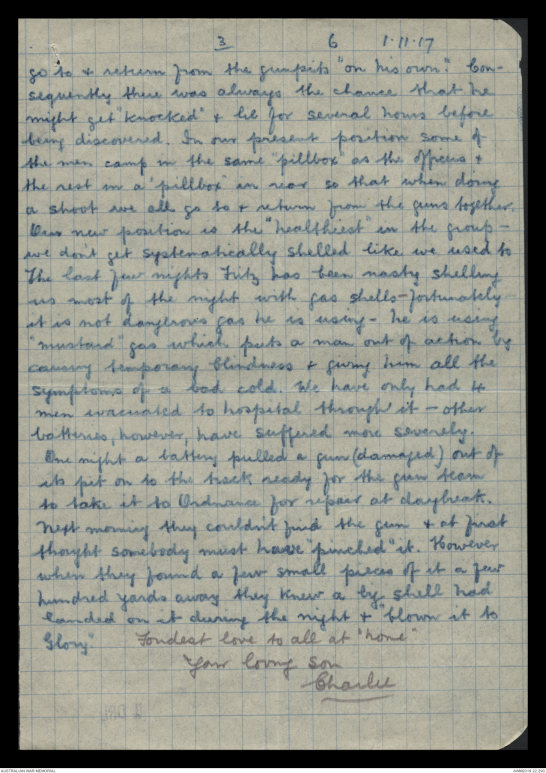 3 6 1.11.17
go to & return from the gunpits "on his own". Con-
sequently there was always the chance that he
might get "knocked" & lie for several hours before
being discovered. In our present position some of
the men camp in the same "pillbox" as the officers &
the rest in a "pillbox" in rear so that when doing
a shoot we all go to & return from the guns together.
Our new position is the "healthiest" in the group -
we don't get systematically shelled like we used to
The last few nights Fritz has been nasty shelling
us most of the night with gas shells - fortunately
it is not dangerous gas he is using - he is using
"mustard" gas which puts a man out of action by
causing temporary blindness & giving him all the
symptoms of a bad cold. We have only had 4
men evacuated to hospital through it - other
batteries, however, have suffered more severely.
One night a battery pulled a gun (damaged) out of
its pit on to the track ready for the gun team
to take it to Ordnance for repair at daybreak.
Next morning they couldn't find the gun & at first
thought somebody must have "pinched" it. However
when they found a few small pieces of it a few
hundred yards away they knew a big shell had
landed on it during the night & "blown it to
Glory"
Fondest love to all at "home"
Your loving son
Charlie
AUSTRALIAN WAR MEMORIAL